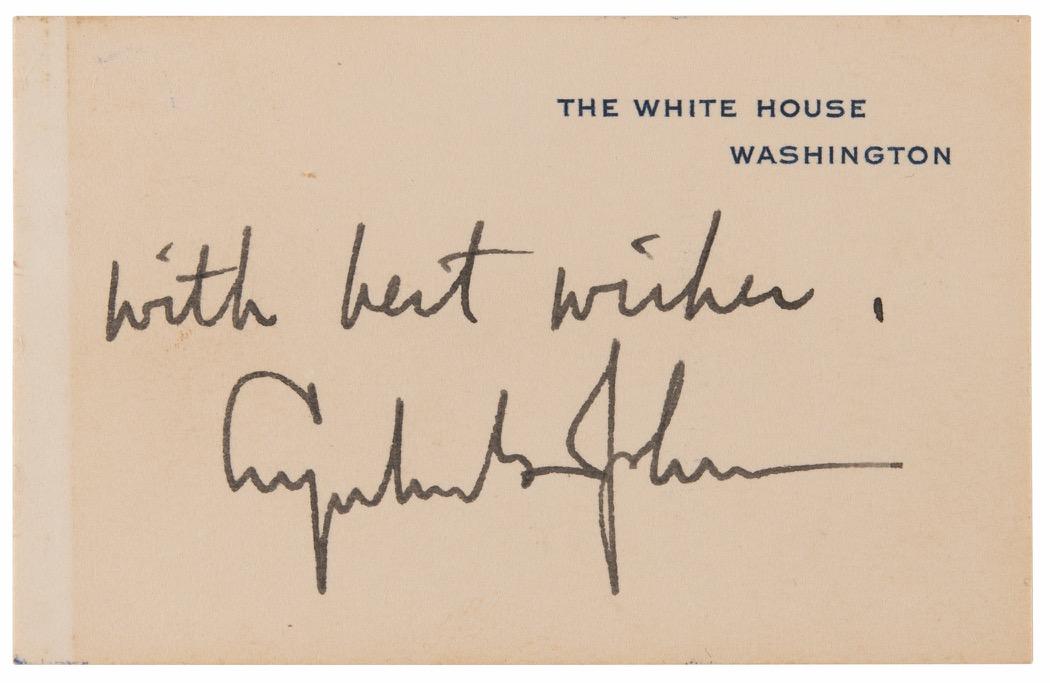 THE WHITE HOUSE
WASHINGTON
with best wishes.
Lyndon B Johnson